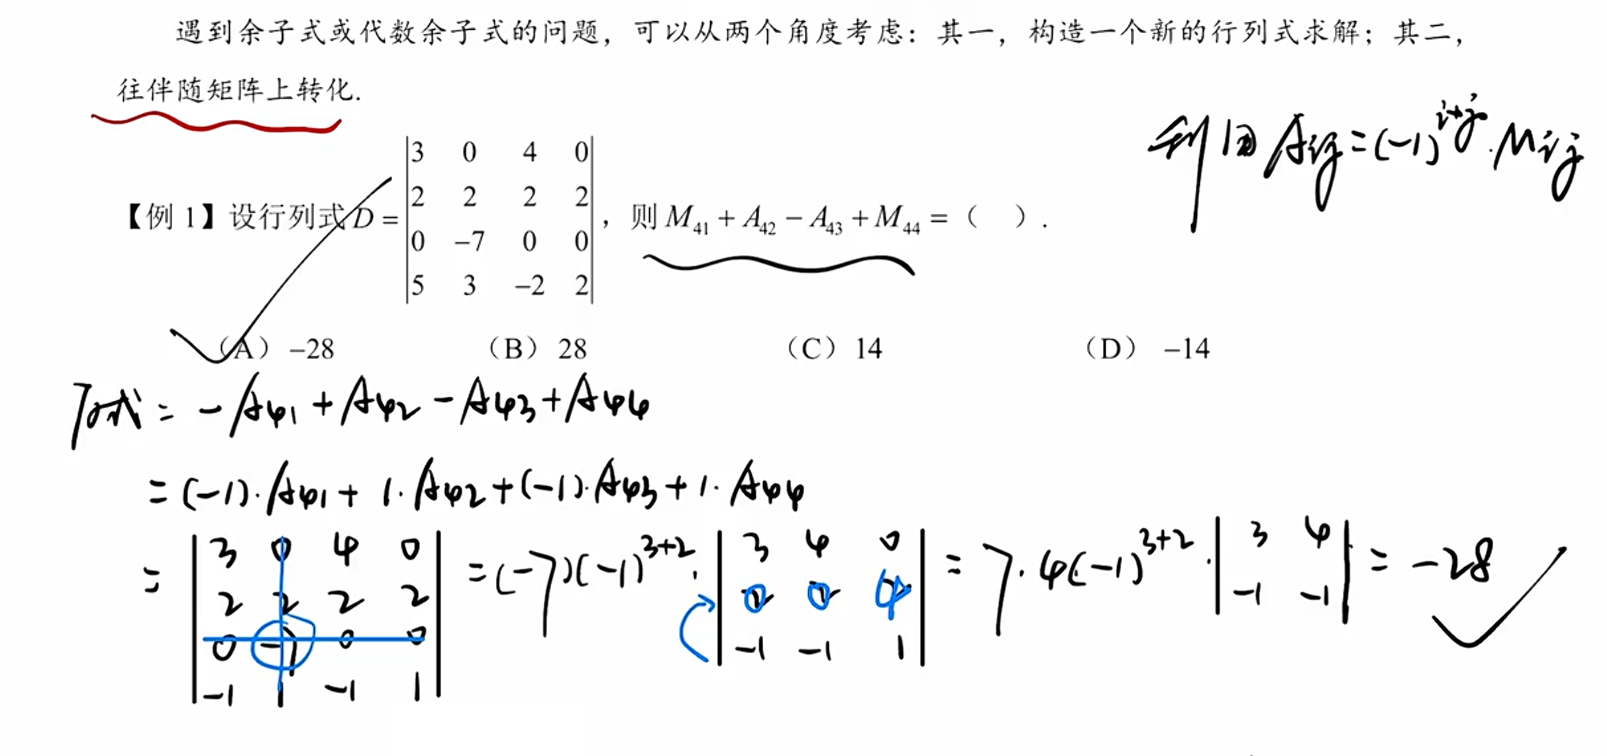 遇到余子式或代数余子式的问题，可以从两个角度考虑：其一，构造一个新的行列式求解；其二，
往伴随矩阵上转化.
利用 Aij=(-1)^{i+j}·Mij
【例 1】设行列式 D = |3 0 4 0; 2 2 2 2; 0 -7 0 0; 5 3 -2 2|，则 M₄₁ + A₄₂ − A₄₃ + M₄₄ =（ ）.
（A）−28 （B）28 （C）14 （D）−14
原式 = -A41 + A42 - A43 + A44
= (-1)·A41 + 1·A42 + (-1)·A43 + 1·A44
= |3 0 4 0; 2 2 2 2; 0 -7 0 0; -1 1 -1 1| = (-7)(-1)^{3+2}·|3 4 0; 0 0 4; -1 -1 1| = 7·4(-1)^{3+2}·|3 4; -1 -1| = -28